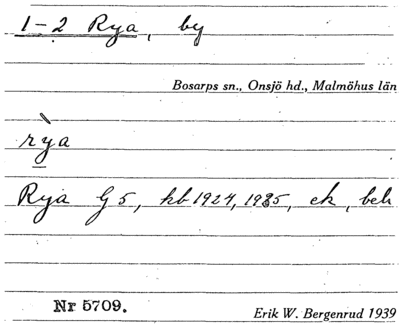 1-2 Rya, by
Bosarps sn., Onsjö hd., Malmöhus län
rya
Rya G5, kb 1924, 1935, ek, beb
Nr 5709.
Erik W. Bergenrud 1939